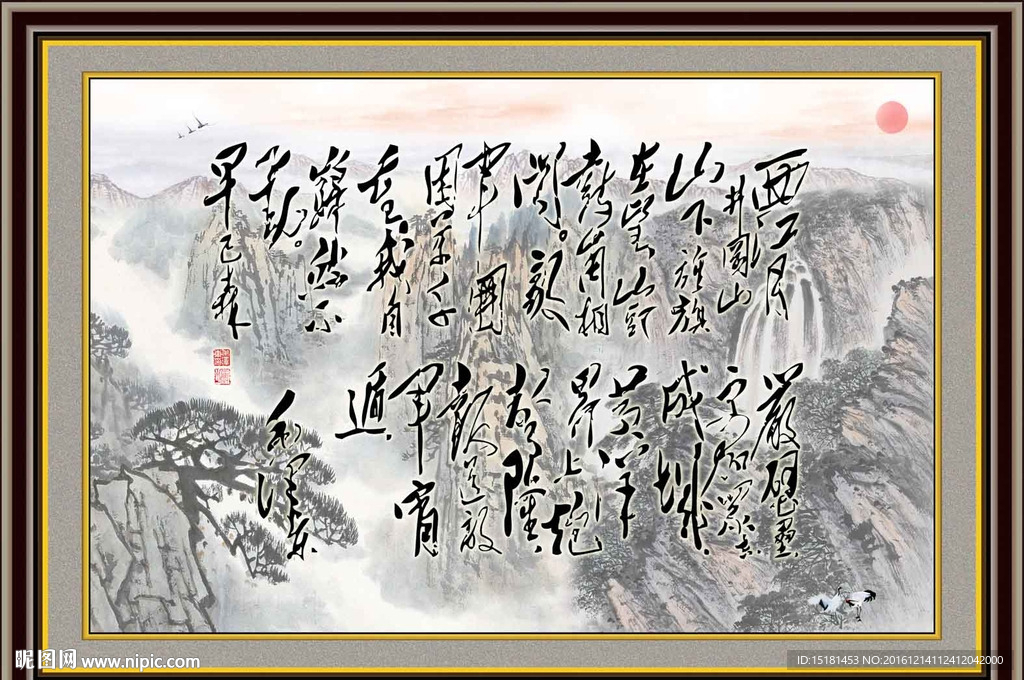 西江月
井岡山
山下旌旗
在望山頭
鼓角相
聞。敵
軍圍
困万千
重我自
巋然不
動。
早已森
嚴壁壘
更加衆志
成城
黄洋
界上炮
聲隆
報道敵
軍宵
遁
毛澤东
昵图网 www.nipic.com
ID:15181453 NO:20161214112412042000